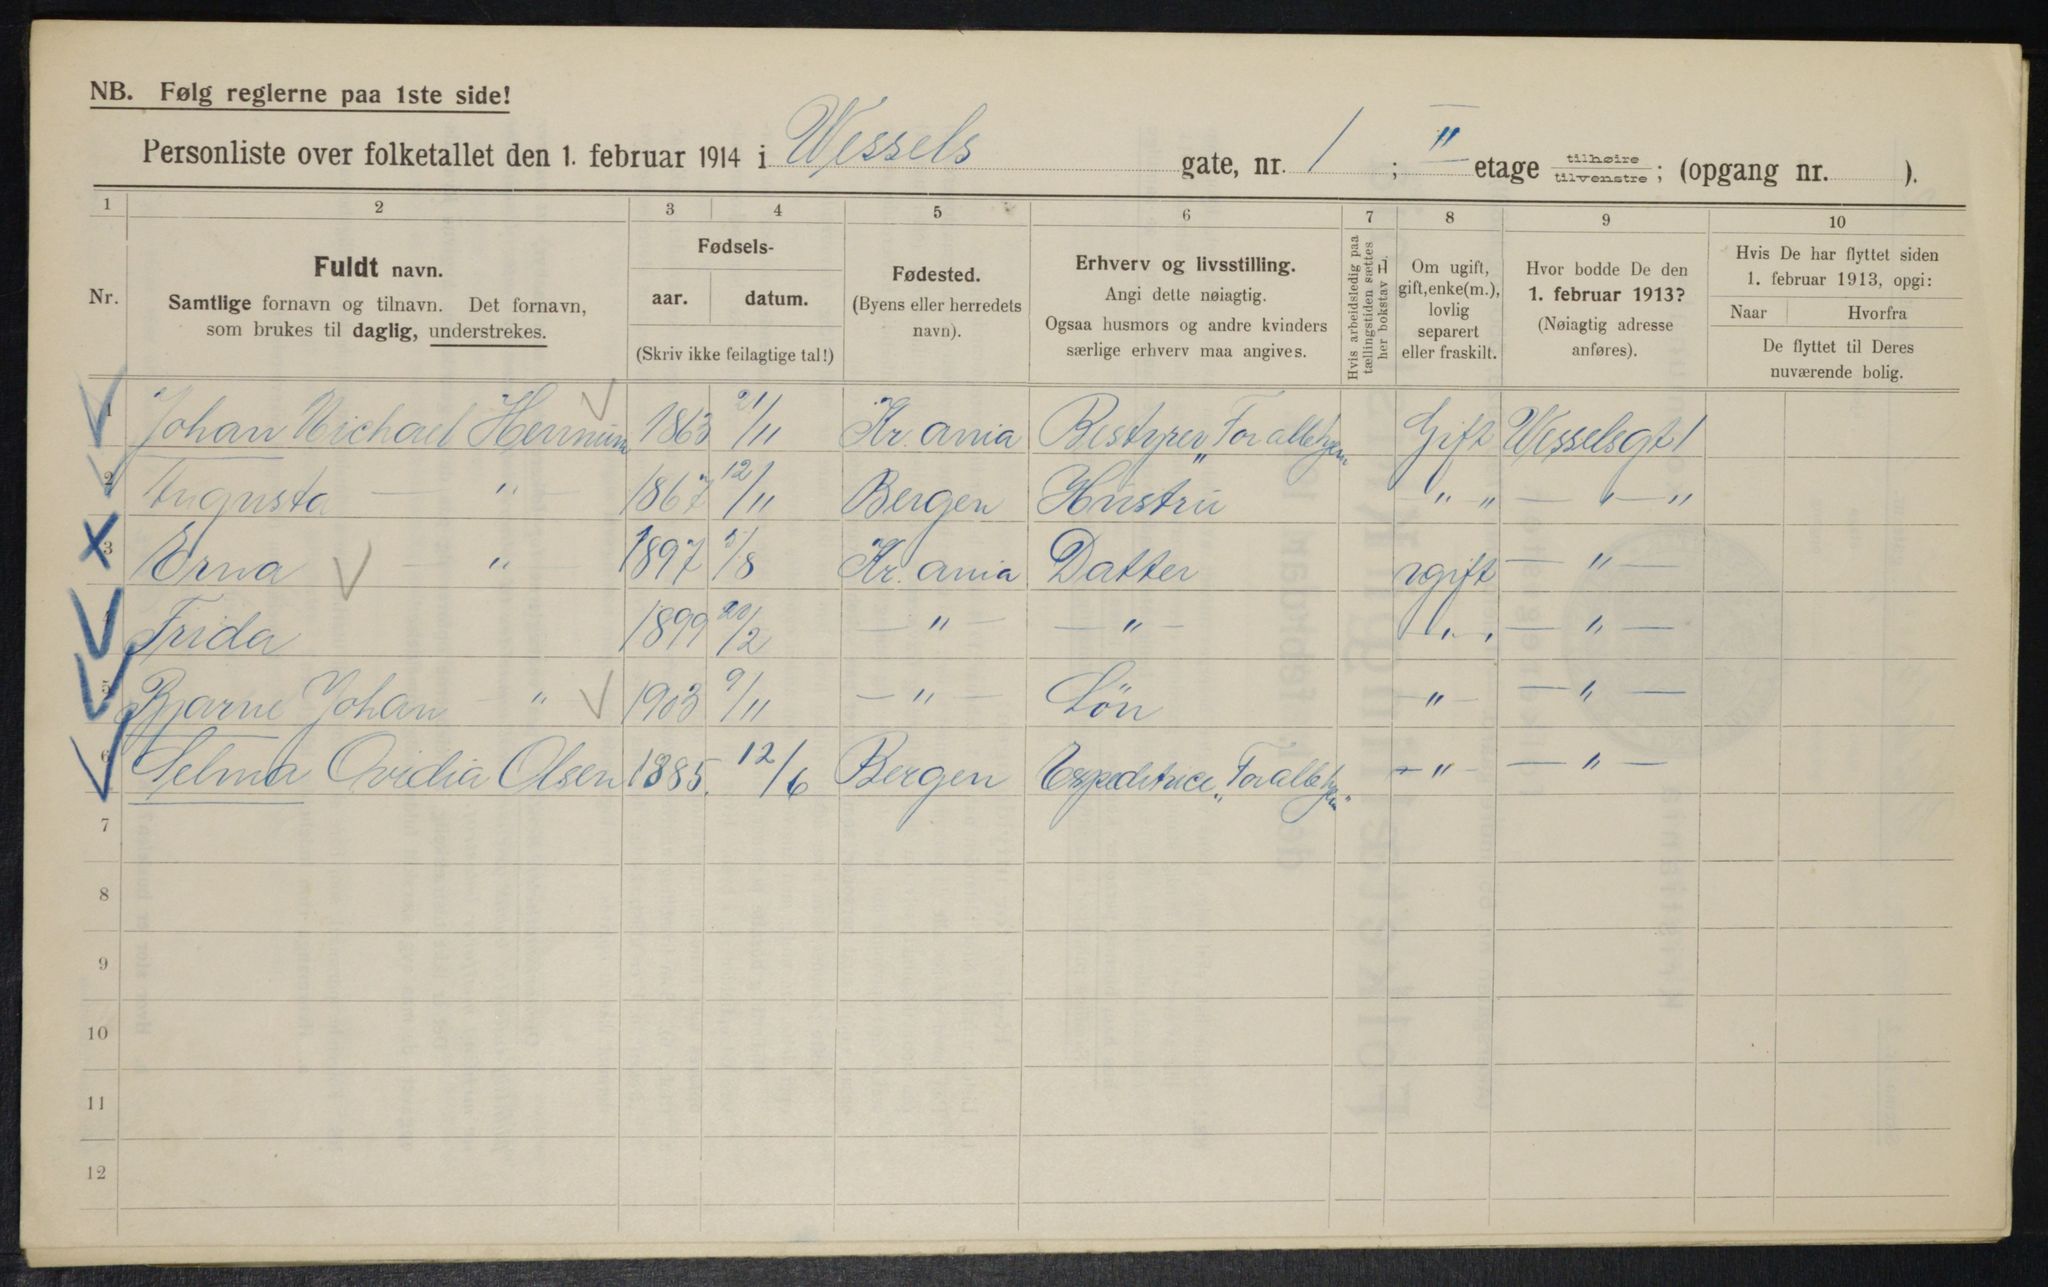 NB. Følg reglerne paa 1ste side!
Personliste over folketallet den 1. februar 1914 i Wessels gate, nr. 1 ; II etage tilhøire tilvenstre ; (opgang nr. ).
1 2 3 4 5 6 7 8 9 10
Nr.
Fuldt navn.
Samtlige fornavn og tilnavn. Det fornavn,
som brukes til daglig, understrekes.
Fødsels-
aar. datum.
(Skriv ikke feilagtige tal!)
Fødested.
(Byens eller herredets
navn).
Erhverv og livsstilling.
Angi dette nøiagtig.
Ogsaa husmors og andre kvinders
særlige erhverv maa angives.
Hvis arbeidsledig paa
tællingstiden sættes
her bokstav L.
Om ugift,
gift, enke(m.),
lovlig
separert
eller fraskilt.
Hvor bodde De den
1. februar 1913?
(Nøiagtig adresse
anføres).
Hvis De har flyttet siden
1. februar 1913, opgi:
Naar Hvorfra
De flyttet til Deres
nuværende bolig.
1 Johan Michael Hennum 1863 21/11 Kr.ania Bestyrer „For alle hjem Gift Wesselsgt 1
2 Augusta — " — 1867 12/11 Bergen Hustru — " " — " — "
3 Erna — " — 1897 /8 Kr.ania Datter ugift — " —
4 Frida 1899 /2 — " — — " — — " — — " —
5 Bjarne Johan — " 1903 9/11 — " — Sön — " — — " —
6 Selma Ovidia Olsen 1885. 12/6 Bergen Expeditrice „For alle hjem" — " — — " —
7
8
9
10
11
12